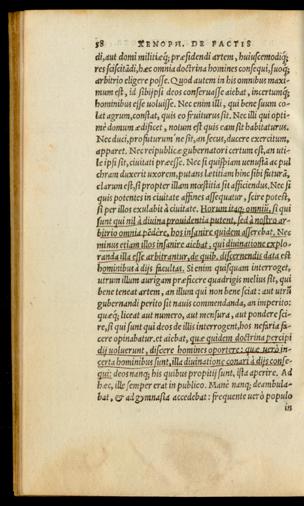 58 XENOPH. DE FACTIS
di, aut domi militiæq́; præsidendi artem, huiuscemodiq́;
res sciscitãdi, hæc omnia doctrina homines consequi, suoq́;
arbitrio eligere posse. Quod autem in his omnibus maxi-
mum est, id sibijpsi deos conseruasse aiebat, incertumq́;
hominibus esse uoluisse. Nec enim illi, qui bene suum co-
lat agrum, constat, quis eo fruiturus sit. Nec illi qui opti-
mè domum ædificet, notum est quis eam sit habitaturus.
Nec duci, profuturum'ne sit, an secus, ducere exercitum,
apparet. Nec reipublicæ gubernatori certum est, an uti-
le ipsi sit, ciuitati præesse. Nec si quispiam uenusta ac pul
chram duxerit uxorem, putans lætitiam hinc sibi futurã,
clarum est, si propter illam mœstitia sit afficiendus. Nec si
quis potentes in ciuitate affines assequatur, scire potest,
si per illos exulabit à ciuitate. Horum itaq; omniũ, si qui
sunt qui nil à diuina prouidentia putent, sed à nostro ar-
bitrio omnia pẽdère, hos insanire quidem asserebat. Nec
minus etiam illos insanire aiebat, qui diuinatione explo-
randa illa esse arbitrantur, de quib. discernendis data est
hominibus à dijs facultas. Si enim quisquam interroget,
utrum illum aurigam præficere quadrigis melius sit, qui
bene teneat artem, an illum qui non bene sciat: aut utrũ
gubernandi perito sit nauis commendanda, an imperito:
quæq́; liceat aut numero, aut mensura, aut pondere sci-
re, si qui sunt qui deos de illis interrogent, hos nefaria fa-
cere opinabatur. et aiebat, quæ quidem doctrina percipi
dij uoluerunt, discere homines oportere: quæ uerò in-
certa hominibus sunt, illa diuinatione conari à dijs conse-
qui: deos nanq; his quibus propitij sunt, ista aperire. Ad
hæc, ille semper erat in publico. Mane nanq; deambula-
bat, & ad gymnasia accedebat: frequente uerò populo
in